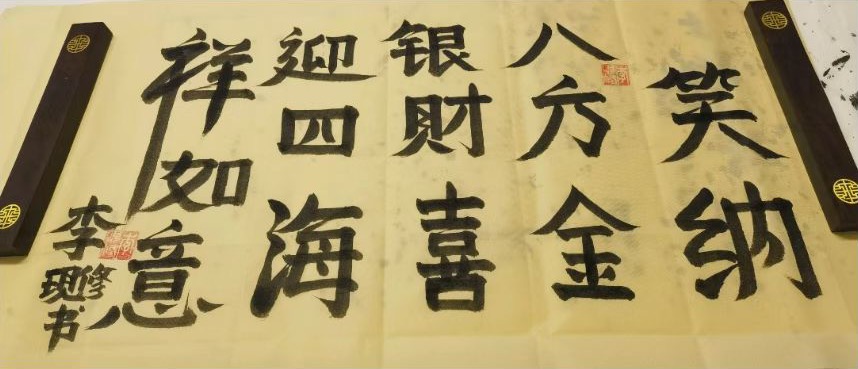 笑纳
八方金
银财喜
迎四海
祥如意
李修现书